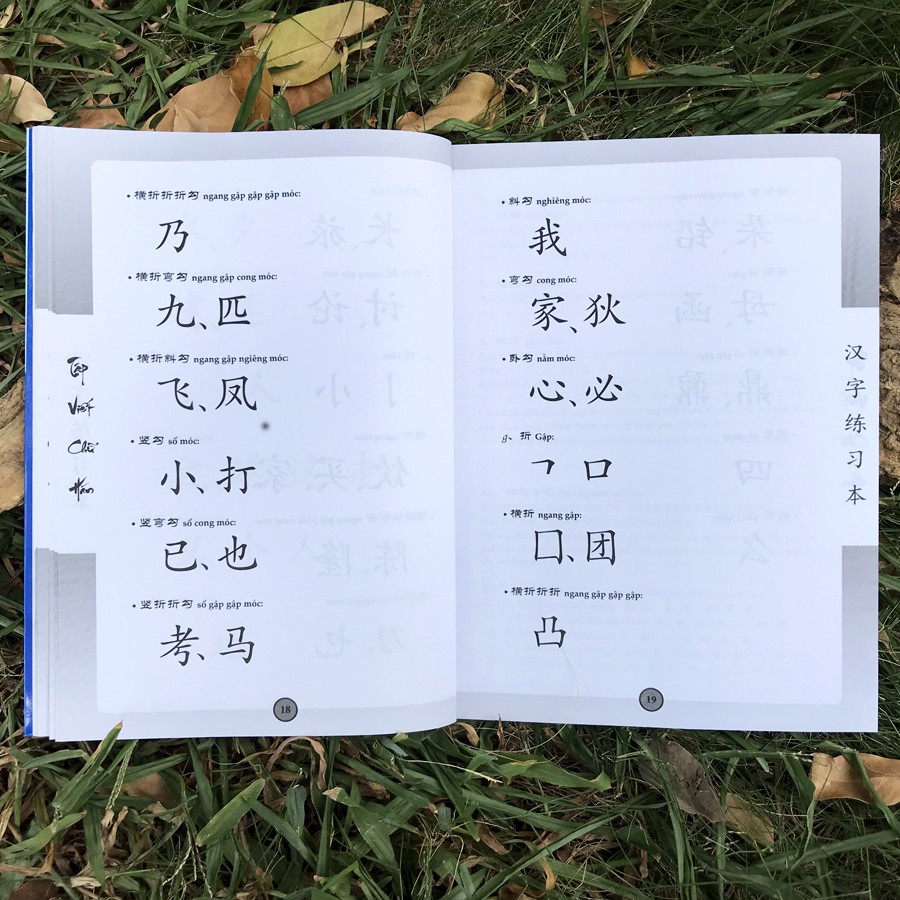 • 横折折折勾 ngang gập gập gập móc:
乃
• 横折弯勾 ngang gập cong móc:
九、匹
• 横折斜勾 ngang gập ngiêng móc:
飞、凤
• 竖勾 sổ móc:
小、打
• 竖弯勾 sổ cong móc:
已、也
• 竖折折勾 sổ gập gập móc:
考、马
18
Tập
Viết
Chữ
Hán
• 斜勾 nghiêng móc:
我
• 弯勾 cong móc:
家、狄
• 卧勾 nằm móc:
心、必
g、折 Gập:
㇕ 口
• 横折 ngang gập:
囗、团
• 横折折折 ngang gập gập gập:
凸
19
汉
字
练
习
本